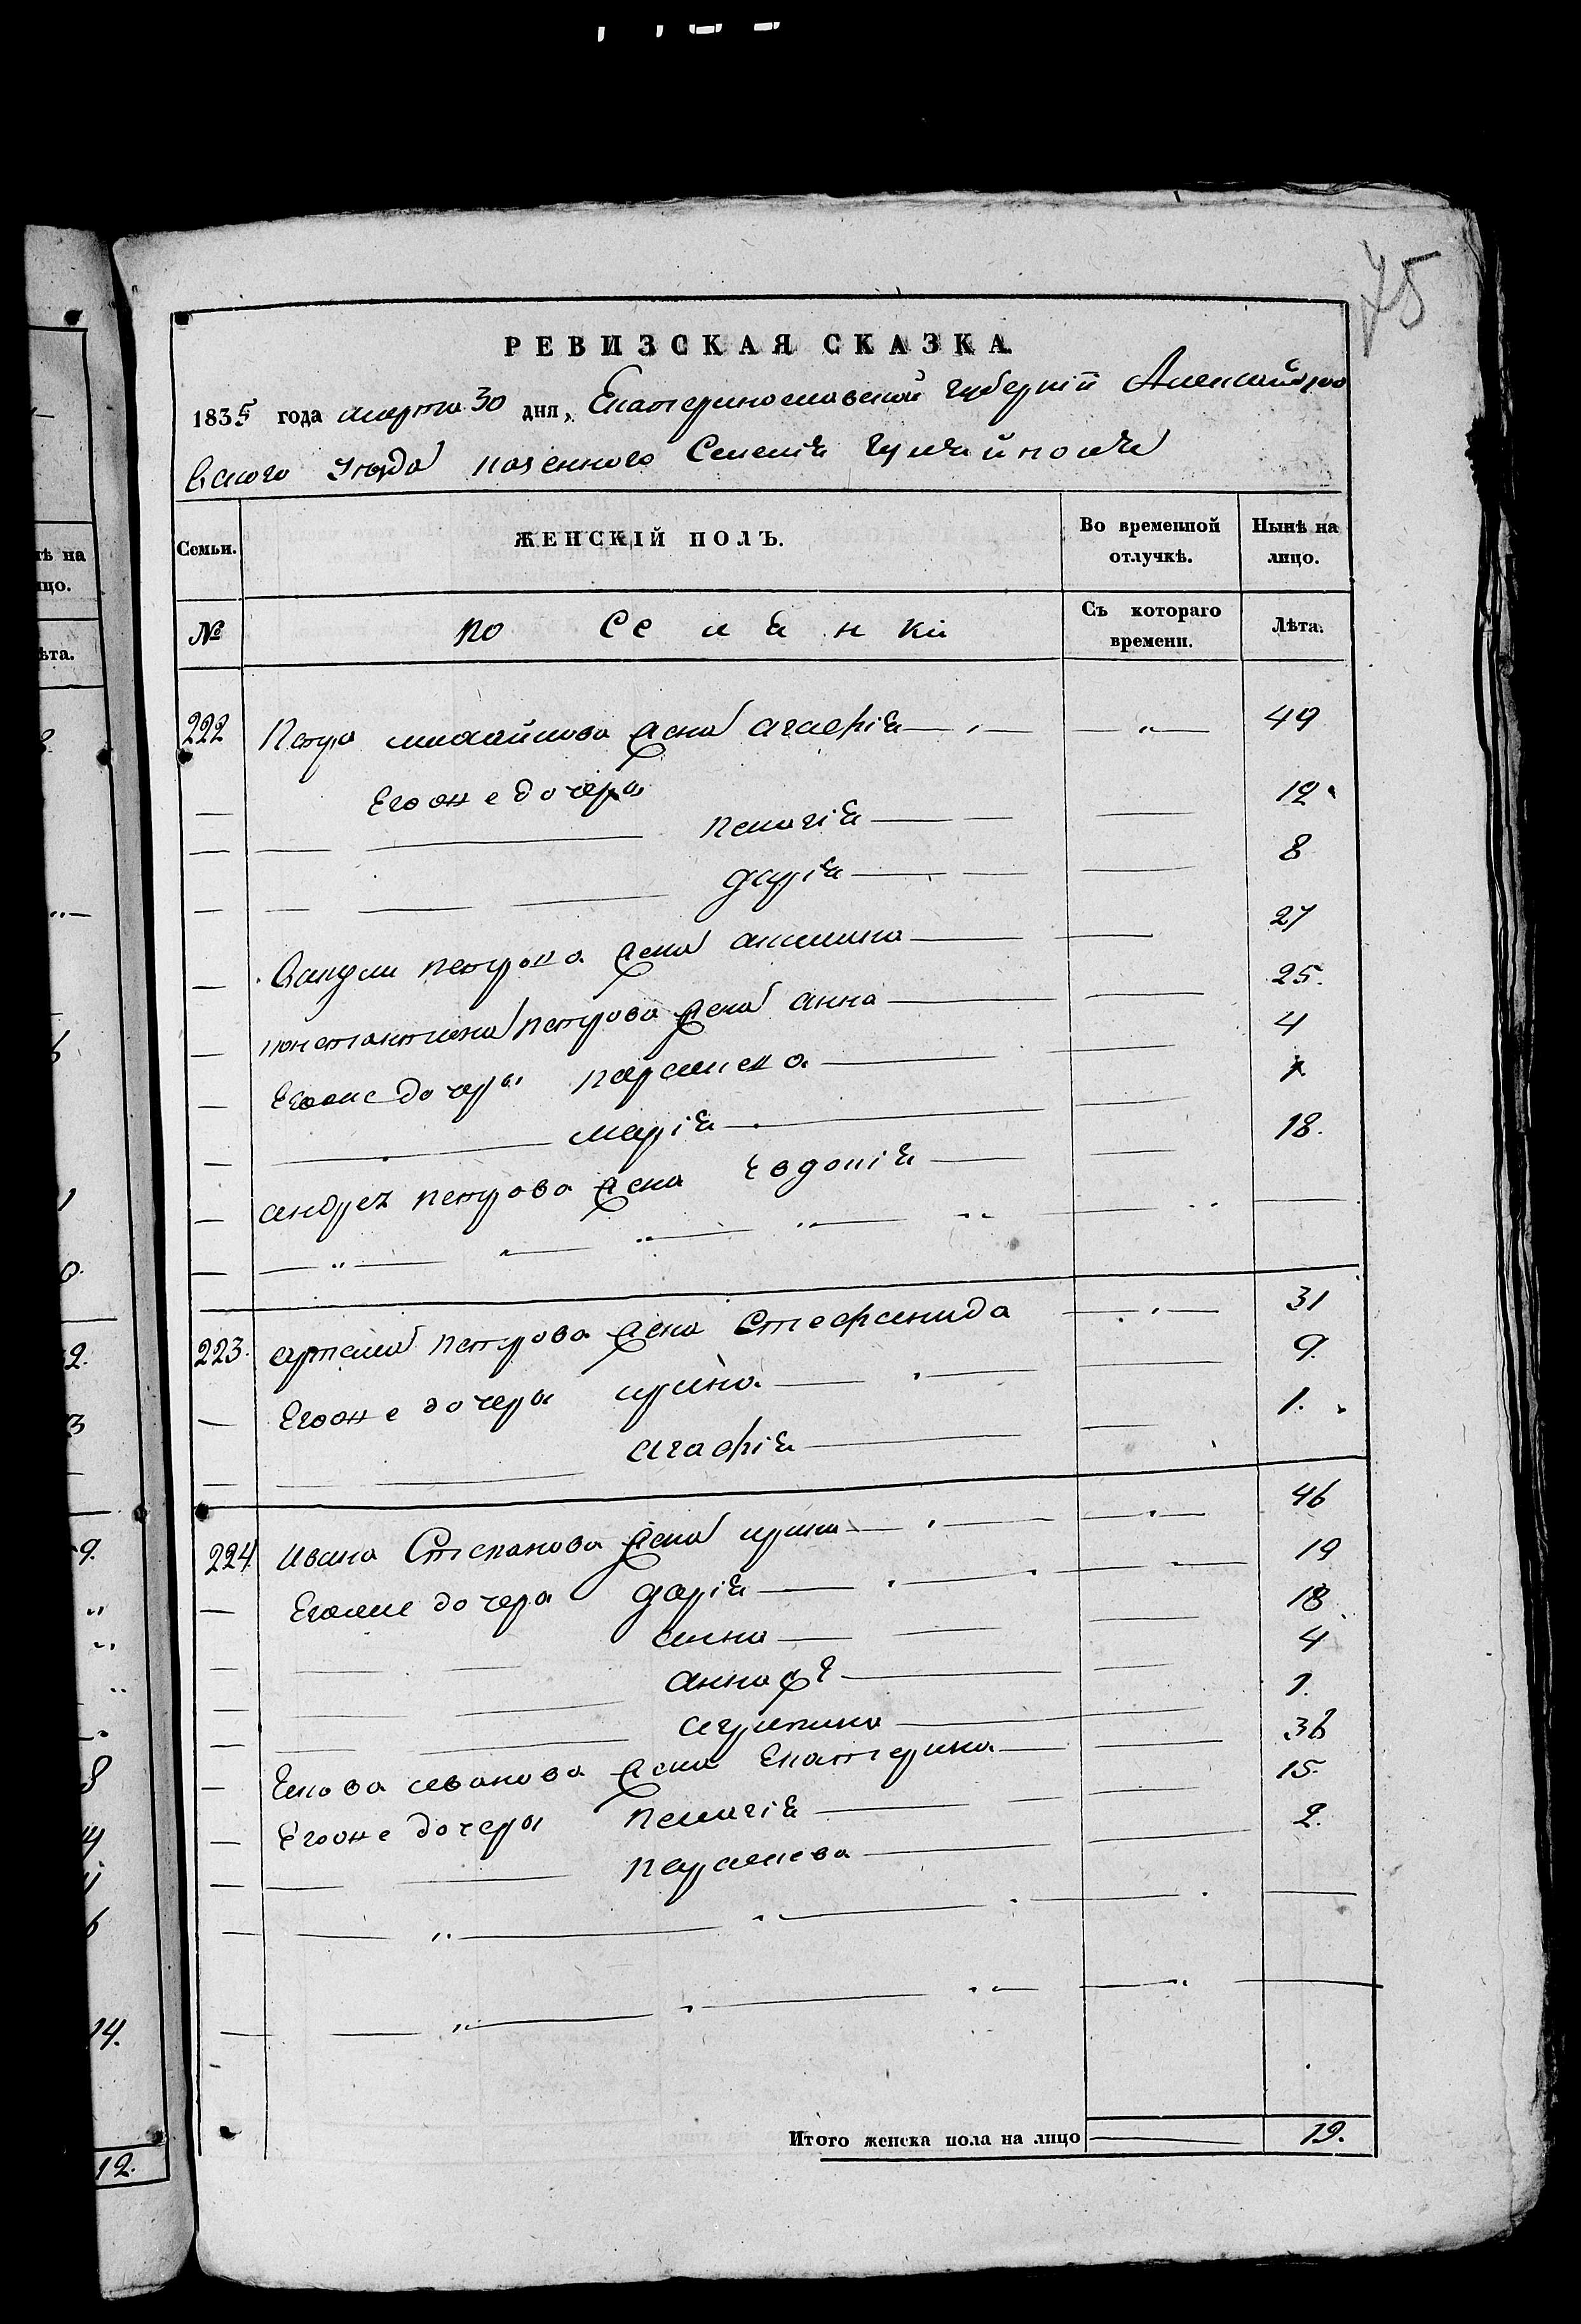 75
РЕВИЗСКАЯ СКАЗКА.
1835 года марта 30 дня, Екатеринославской губерніи Александро
вского уезда казенного Селенія гуляйполя
Семьи. ЖЕНСКІЙ ПОЛЪ. Во временной отлучкѣ. Нынѣ на лицо.
№ По Се ля н ки Съ котораго времени. Лѣта.
222 Петра михайлова жена агафія 49
Егоже дочери
пелагія 12
дарія 8
петрова жена акилина 27
константина петрова жена анна 25.
Егоже дочери парасκева 4
марія
андрея петрова жена Евдокія 18.
223. артема петрова жена Стефанида 31
Егоже дочери ирина 9.
агафія 1.
224 Ивана Степанова жена ирина 46
Егоже дочери дарія 19
анна 18
анна же 4
агрипина 1.
иванова жена Екатерина 36
Егоже дочери пелагія 15.
параскева 2.
Итого женска пола на лицо 19.
ѣ на
цо.
ѣта.
14.
12.